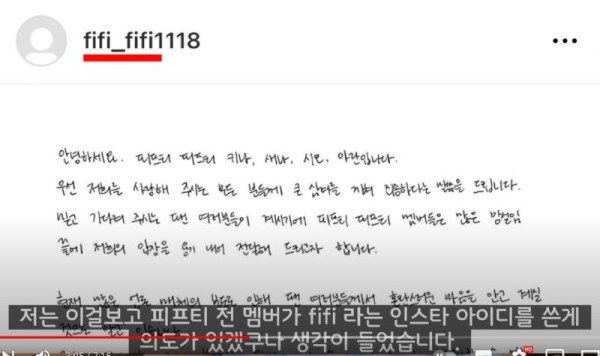 fifi_fifi1118
안녕하세요. 피프티 피프티 키나, 새나, 시오, 아란입니다.
우선 저희를 사랑해 주시는 모든 분들께 큰 심려를 끼쳐 죄송하다는 말씀을 드립니다.
믿고 기다려 주시는 팬 여러분들이 계시기에 피프티 피프티 멤버들은 많은 망설임
끝에 저희의 입장을 용기 내어 전달해 드리고자 합니다.
현재 많은 언론 매체의 보도로 인해 팬 여러분들께서 혼란스러운 마음을 안고 계실
저는 이걸보고 피프티 전 멤버가 fifi 라는 인스타 아이디를 쓴게
의도가 있겠구나 생각이 들었습니다.